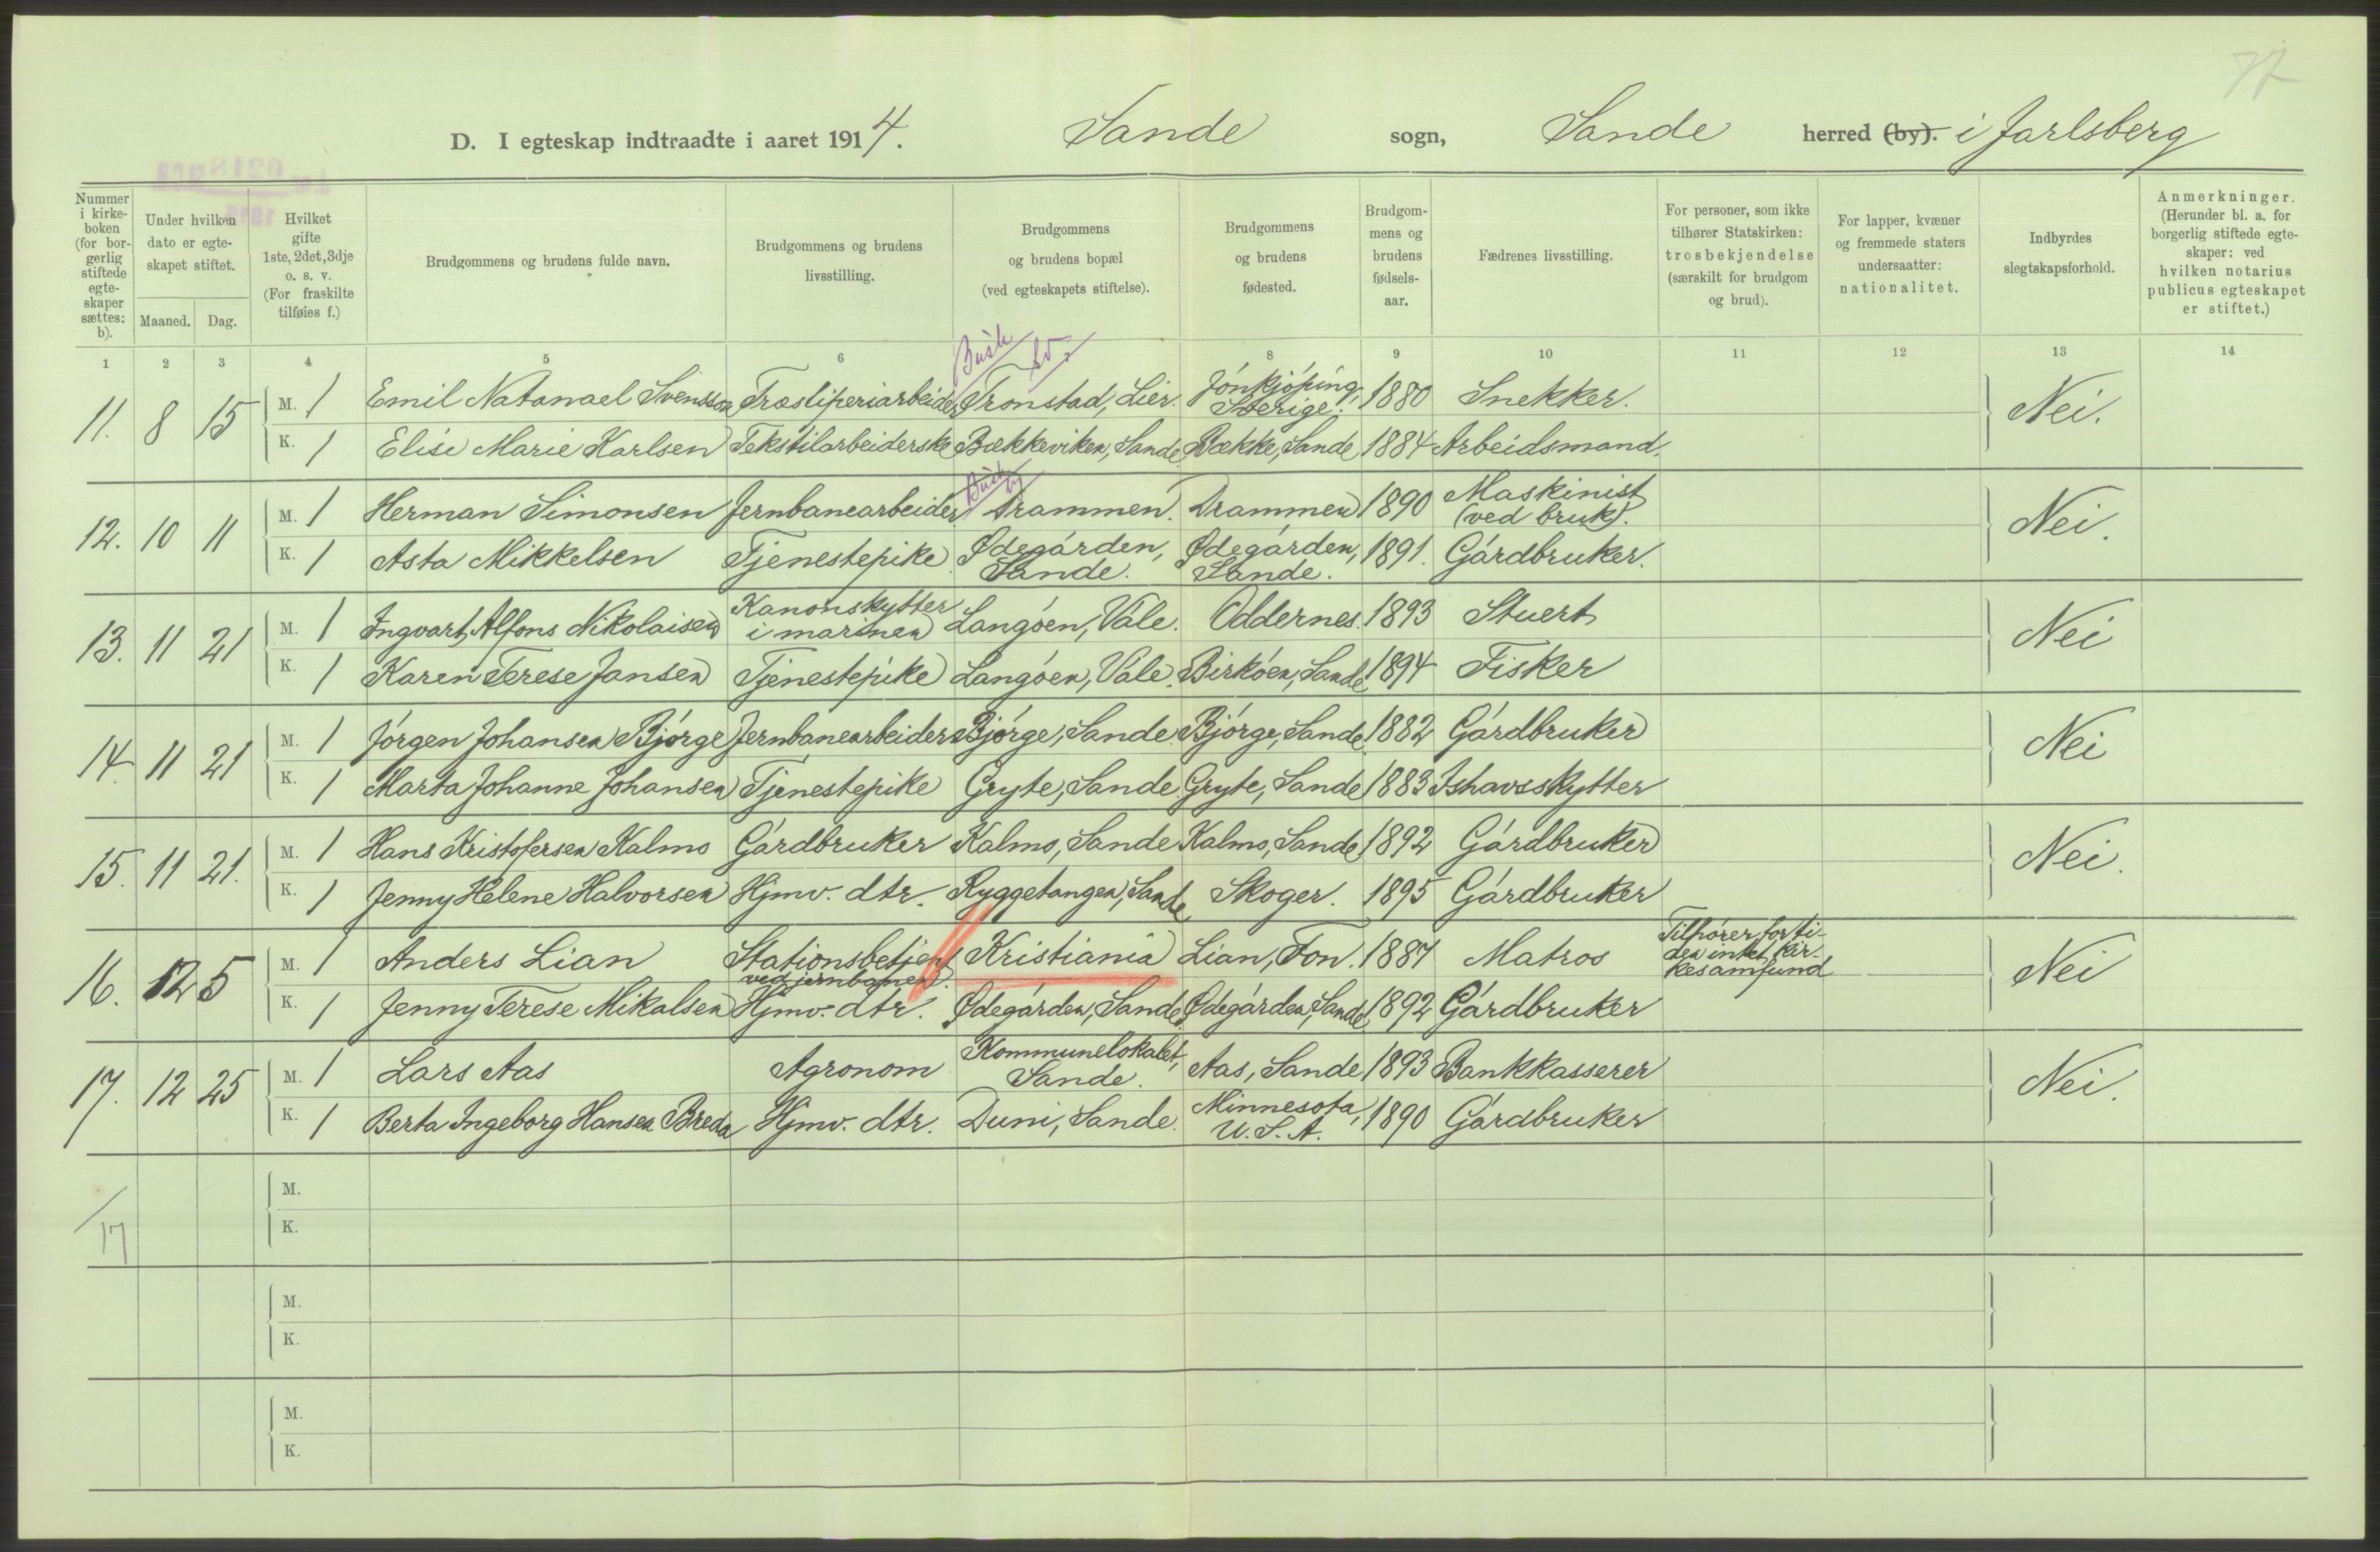 77
D. I egteskap indtraadte i aaret 1914. Sande sogn, Sande herred (by). i Jarlsberg
Nummer i kirkeboken (for borgerlig stiftede egteskaper sættes: b).
Under hvilken dato er egteskapet stiftet.
Maaned. Dag.
Hvilket gifte 1ste, 2det, 3dje o. s. v. (For fraskilte tilføies f.)
Brudgommens og brudens fulde navn.
Brudgommens og brudens livsstilling.
Brudgommens og brudens bopæl (ved egteskapets stiftelse).
Brudgommens og brudens fødested.
Brudgommens og brudens fødselsaar.
Fædrenes livsstilling.
For personer, som ikke tilhører Statskirken: trosbekjendelse (særskilt for brudgom og brud).
For lapper, kvæner og fremmede staters undersaatter: nationalitet.
Indbyrdes slegtskapsforhold.
Anmerkninger. (Herunder bl. a. for borgerlig stiftede egteskaper: ved hvilken notarius publicus egteskapet er stiftet.)
1 2 3 4 5 6 8 9 10 11 12 13 14
Busk
11. 8 15 M. 1 Emil Natanael Svensson Træsliperiarbeider Tronstad, Lier. Jönkjöping, Sverige. 1880 Snekker. Nei.
K. 1 Elise Marie Karlsen Tekstilarbeiderske Bækkeviken, Sande Bække, Sande 1884 Arbeidsmand.
Busk by
12. 10 11 M. 1 Herman Simonsen Jernbanearbeider Drammen. Drammen 1890 Maskinist (ved bruk). Nei.
K. 1 Asta Mikkelsen Tjenestepike Ødegården, Sande. Ødegården, Sande. 1891. Gårdbruker.
13. 11 21 M. 1 Ingvart Alfons Nikolaisen Kanonskytter i marinen Langöen, Våle. Oddernes. 1893 Stuert Nei
K. 1 Karen Terese Jansen Tjenestepike Langöen, Våle. Birköen, Sande 1894 Fisker
14. 11 21 M. 1 Jörgen Johansen Bjórge Jernbanearbeider Bjórge, Sande Bjórge, Sande 1882 Gårdbruker Nei
K. 1 Marta Johanne Johansen Tjenestepike Gryte, Sande Gryte, Sande 1883 Ishavsskytter
15. 11 21. M. 1 Hans Kristofersen Kalmo Gårdbruker Kalmo, Sande Kalmo, Sande 1892 Gårdbruker Nei.
K. 1 Jenny Helene Halvorsen Hjmv. dtr. Ryggetangen, Sande Skoger. 1895 Gårdbruker
16. 12 5 M. 1 Anders Lian Stationsbetjent ved jernbanen. Kristiania Lian, Fon. 1887 Matros Tilhører for tiden intet kirkesamfund Nei
K. 1 Jenny Terese Mikalsen Hjmv. dtr. Ødegården, Sande Ødegården, Sande 1892 Gårdbruker
17. 12 25 M. 1 Lars Aas Agronom Kommunelokalet, Sande. Aas, Sande 1893 Bankkasserer Nei.
K. 1 Berta Ingeborg Hansen Breda Hjmv. dtr. Duni, Sande. Minnesota, U.S.A. 1890 Gårdbruker
M.
17
K.
M.
K.
M.
K.